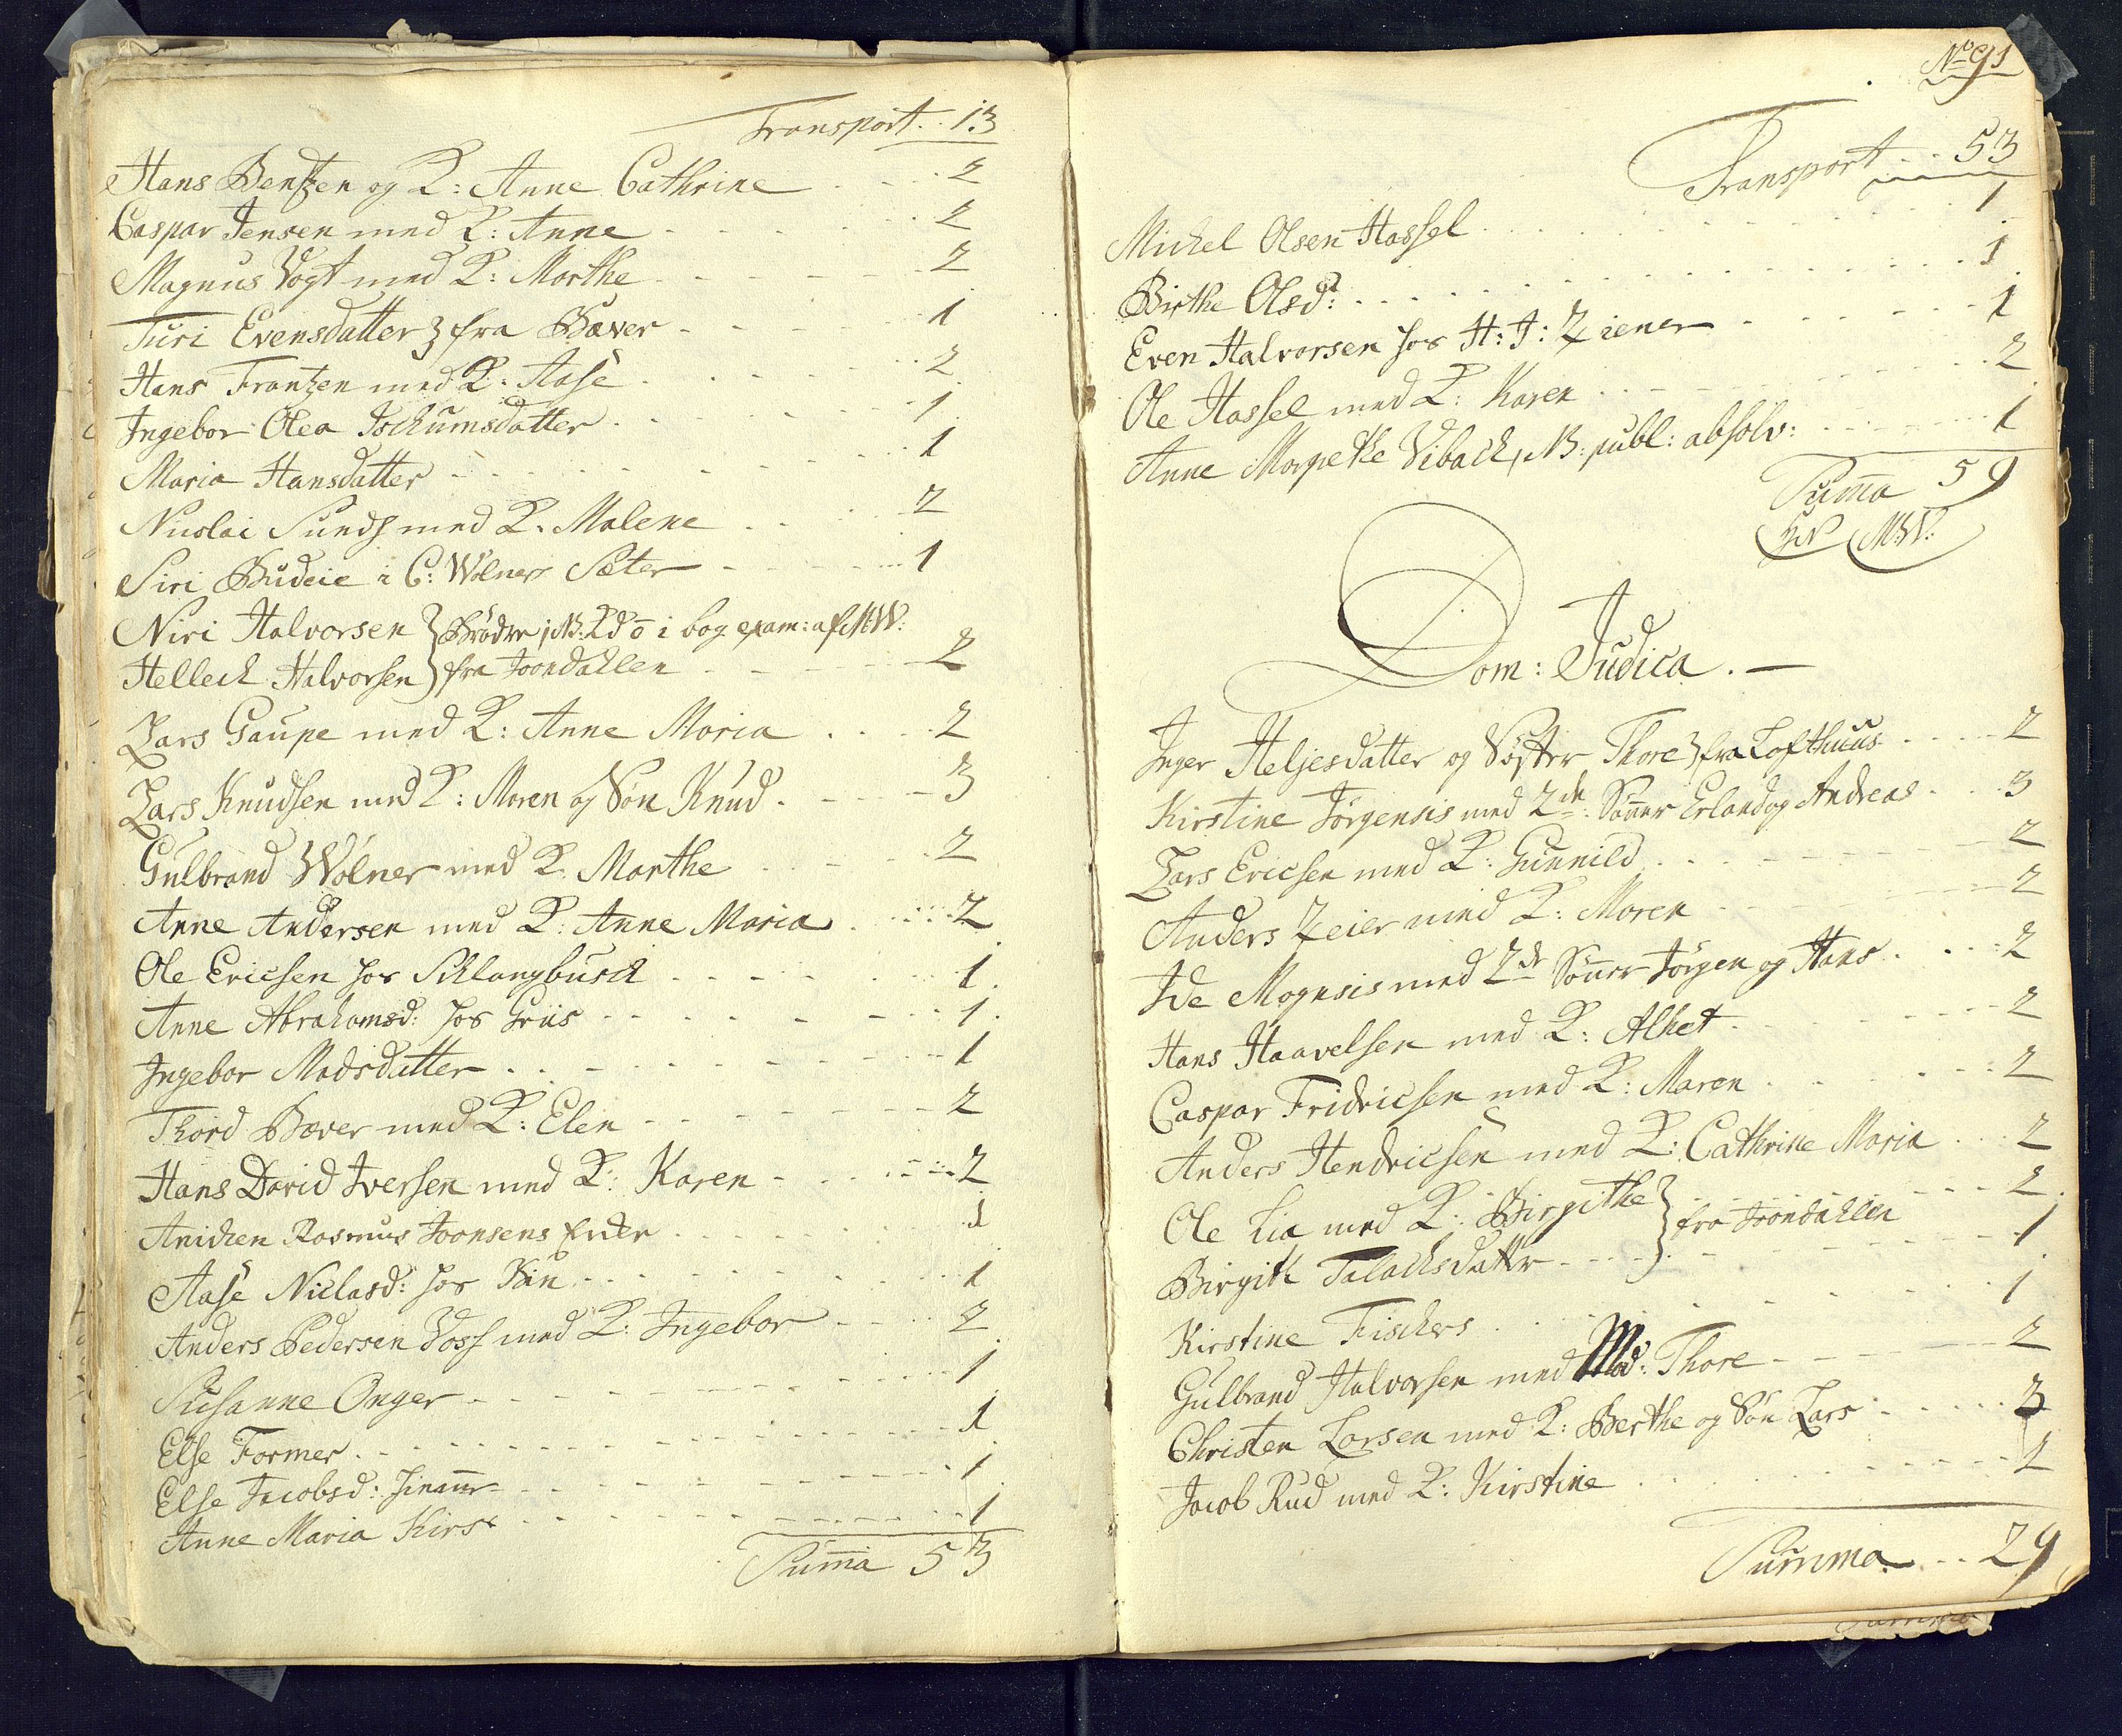 Transport .. 13
Hans Bentzen og K: Anne Cathrine . . . 2
Caspar Jensen med K: Anne - - - - - 2
Magnus Vogt med K: Marthe - - - - - 2
Turi Evensdatter } fra Bæver - - - - - 1
Hans Frantzen med K: Aase - - - - - 2
Ingebor Olea Jochumsdatter - - - - - 1
Maria Hansdatter - - - - - 1
Nicolai Sunds med K: Malene - - - 2
Siri Budeie i C: Wølners Sæter - - - - 1
Niri Halvorsen } Brødre, NB: i bog exam: af MW:
Helleck Halvorsen } fra Joondahlen - - - - 2
Lars Gaupe med K: Anne Maria . . . . 2
Lars Knudsen med K: Maren og Søn Knud . - - - 3
Gulbrand Wølner med K: Marthe - - - 2
Anne Andersen med K: Anne Maria . . . . 2
Ole Ericsen hos Schlangbusch - - - - - 1
Anne Abrahamsd: hos Griis - - - - - 1
Ingebor Madsdatter - - - - - 1
Thord Bæver med K: Elen - - - - - 2
Hans David Iversen med K: Karen - - - - 2
Anichen Rasmus Joonsens Encke - - - - 1
Aase Niclasd: hos - - - - - 1
Anders Pedersen Voss med K: Ingebor - - - - 2
Susanne Onger - - - - - 1
Else Former - - - - - 1
Else Jacobsd: - - - - - 1
Anne Maria Kirs - - - - - 1
Suma 53
No 91
Transport . . 53
Michel Olsen Hassel - - - - - 1
Birthe Olsd: - - - - - 1
Even Halvorsen hos H: J: Ziener - - - - - 1
Ole Hassel med K: Karen - - - - - 2
Anne Margethe Vibach, NB: publ: absolv: - - - - 1
Suma 59
MW:
Dom: Judica . —
Inger Heljesdatter og Søster Thore } fra Lofthuus - - - 2
Kirstine Jørgensis med 2de Sønner Erland og Andreas - - - 3
Lars Ericsen med K: Gunnild - - - - - 2
Anders Zeier med K: Maren - - - - - 2
Ide Mognsis med 2de Sønner Jørgen og Hans - - - 2
Hans Haavelsen med K: Alhet - - - - - 2
Caspar Fridricsen med K: Maren - - - - - 2
Anders Hendricsen med K: Cathrine Maria - - - 2
Ole Lia med K: Birgithe } - - - - - 2
Birgith Talachsdatter - - - } fra Joondahlen - - - 1
Kirstine Fischers - - - - - 1
Gulbrand Halvorsen med Mod: Thore - - - - - 2
Christen Larsen med K: Berthe og Søn Lars - - - - 3
Jacob Rud med K: Kirstine - - - - - 2
Summa - - 29